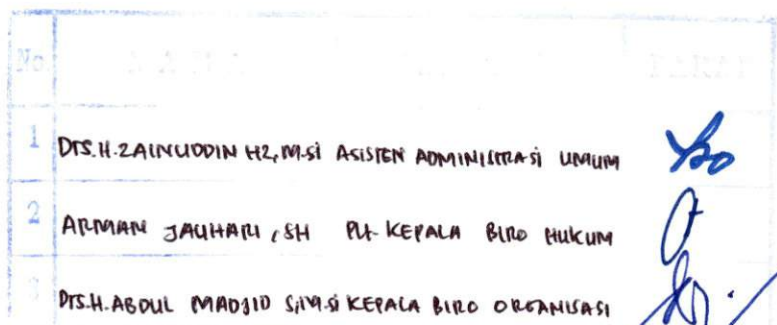 No
PARAF
1 DrS.H.ZAINUDDIN HZ, M.Si ASISTEN ADMINISTRASI UMUM
2 ARMAN JAUHARI, SH Plt KEPALA BIRO HUKUM
3 DrS.H.ABDUL MADJID S, M.Si KEPALA BIRO ORGANISASI